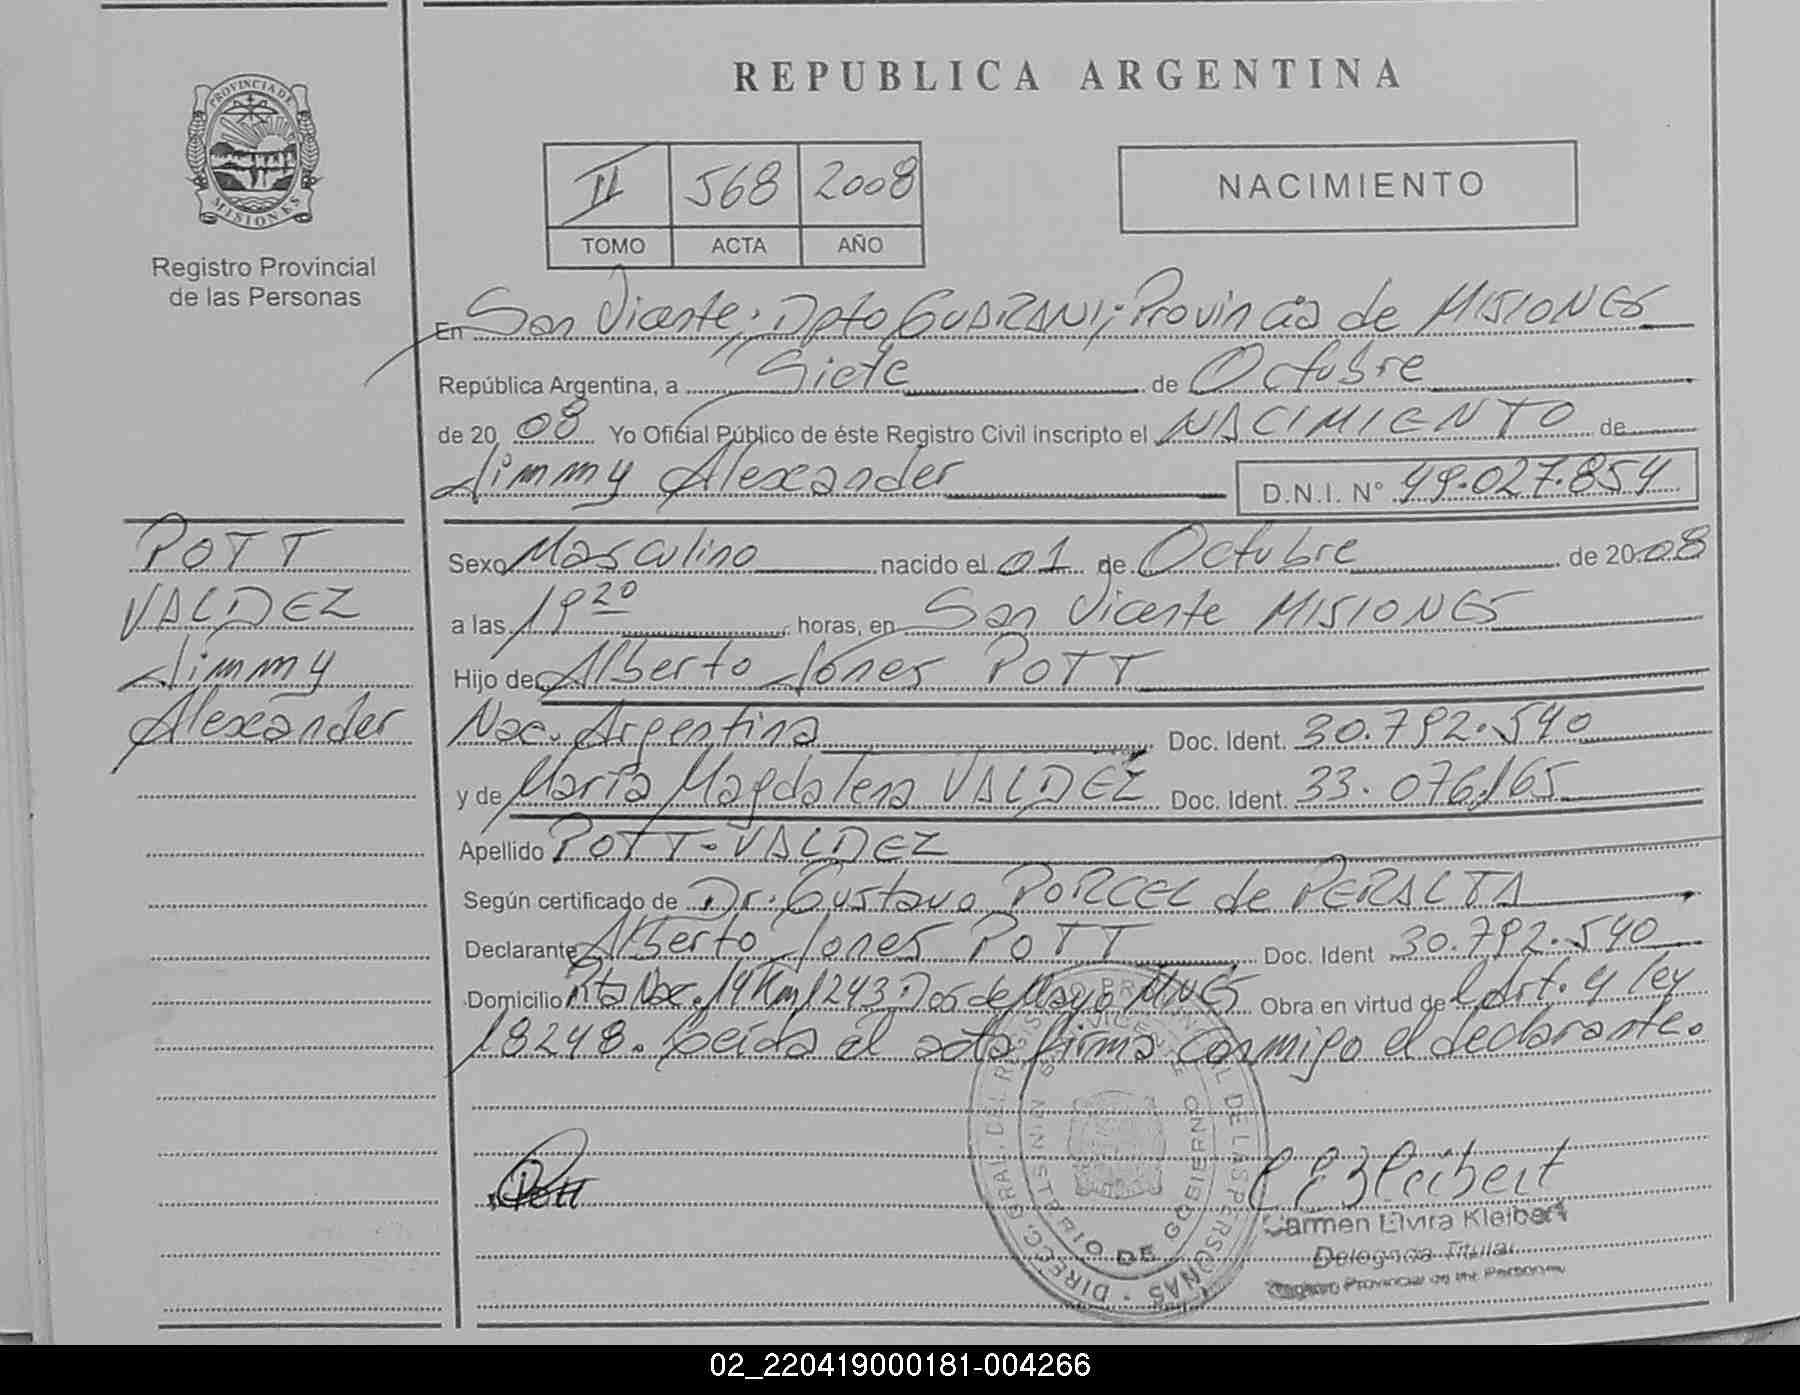 REPUBLICA ARGENTINA
PROVINCIA DE
MISIONES
Registro Provincial
de las Personas
II 568 2008
TOMO ACTA AÑO
NACIMIENTO
En San Vicente; Dpto GUARANI; Provincia de MISIONES
República Argentina, a Siete de Octubre
de 20 08 Yo Oficial Público de éste Registro Civil inscripto el NACIMIENTO de
Jimmy Alexander D.N.I. N° 49.027.854
POTT
VALDEZ
Jimmy
Alexander
Sexo Masculino nacido el 01 de Octubre de 20 08
a las 19 20 horas, en San Vicente MISIONES
Hijo de Alberto Jones POTT
Nac. Argentina Doc. Ident. 30.792.540
y de María Magdalena VALDEZ Doc. Ident. 33.076.165
Apellido POTT-VALDEZ
Según certificado de Dr. Gustavo PORCEL de PERALTA
Declarante Alberto Jones POTT Doc. Ident 30.792.540
Domicilio Rta Nac. 14 Km 1243 Dos de Mayo MNES Obra en virtud de l Art. 4 ley
18248. Leída el acta firma conmigo el declarante.
Pott
DIRECC. GRAL. DEL REGISTRO PROVINCIAL DE LAS PERSONAS
SAN VICENTE
MINISTERIO DE GOBIERNO
C E Kleibert
Carmen Elvira Kleibert
Delegada Titular
Registro Provincial de las Personas
02_220419000181-004266